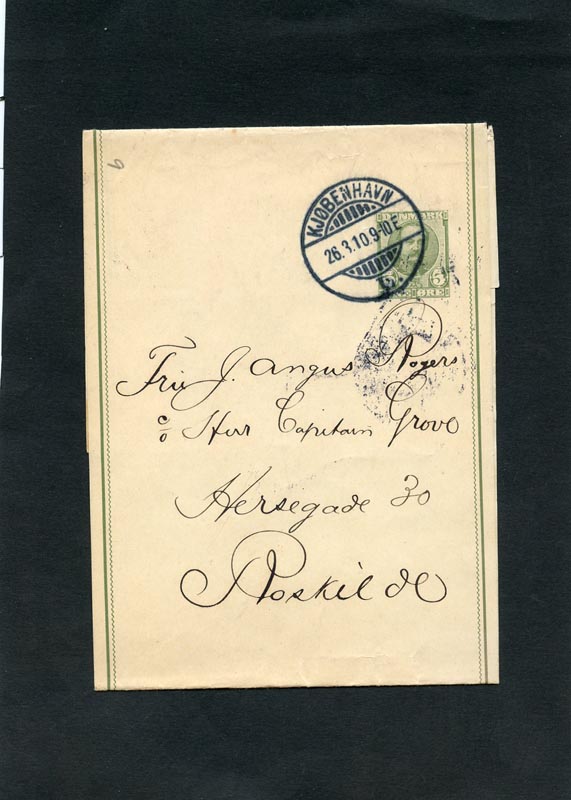 9
KJØBENHAVN
26.3.10.9-10 E
DANMARK
5
ØRE
Fru J. Angus Rogers
c/o Herr Capitain Grove
Hersegade 30
Roskilde